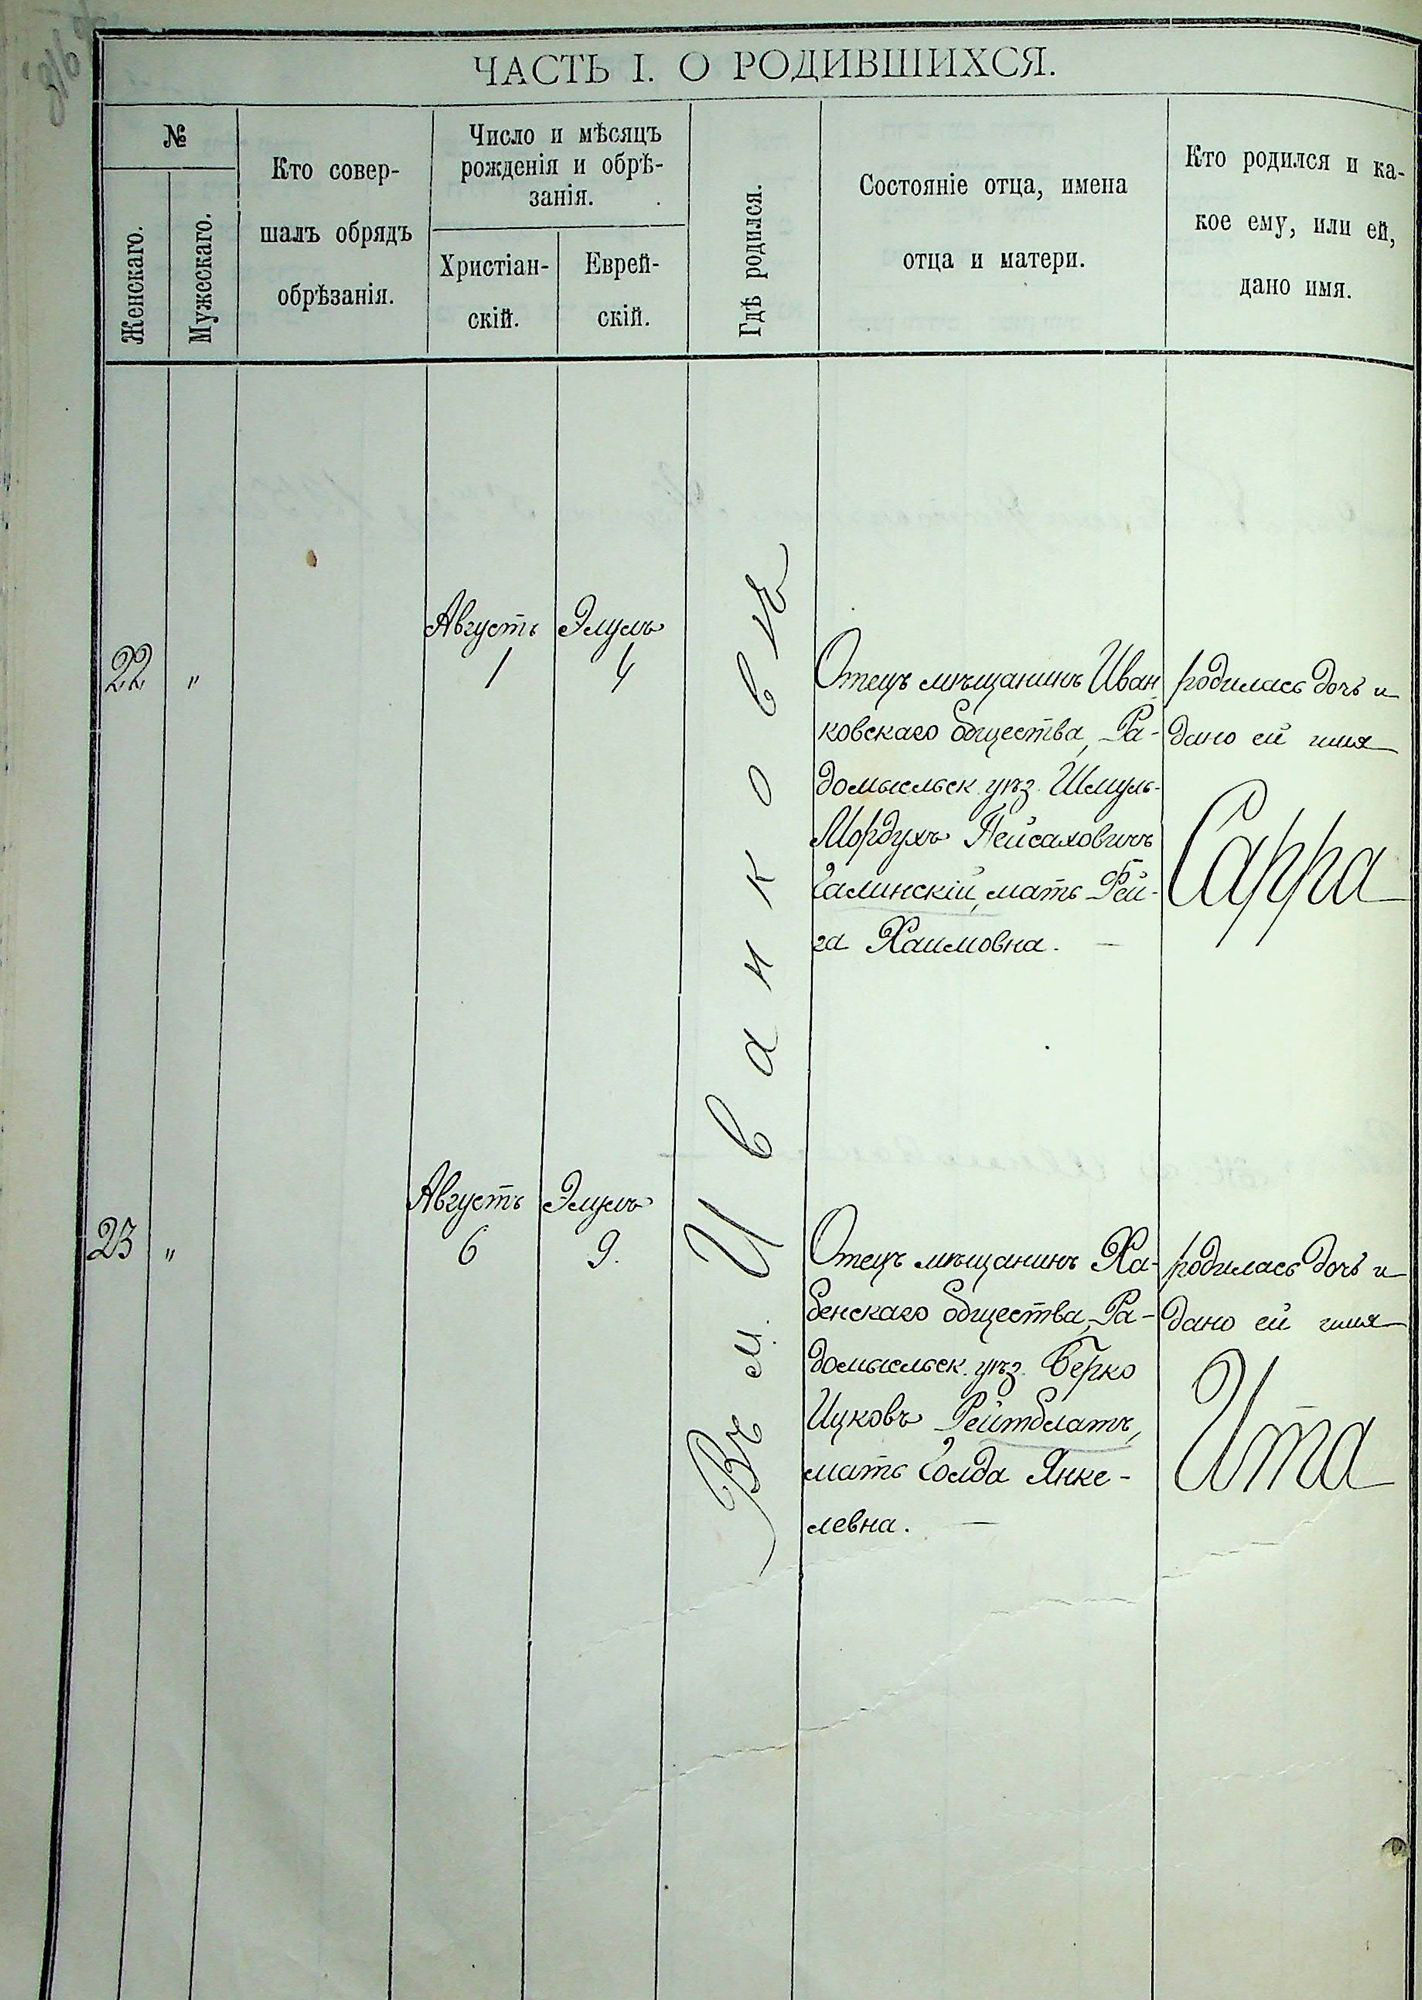 ЧАСТЬ I. О РОДИВШИХСЯ.
№
Женскаго.
Мужескаго.
Кто совер-
шалъ обрядъ
обрѣзанія.
Число и мѣсяцъ
рожденія и обрѣ-
занія.
Христіан-
скій.
Еврей-
скій.
Гдѣ родился.
Состояніе отца, имена
отца и матери.
Кто родился и ка-
кое ему, или ей,
дано имя.
Въ м. Иванковѣ
22
"
Августъ
1
Элулъ
4
Отецъ мѣщанинъ Иван
ковскаго общества, Ра-
домысльск. уѣз. Шмуль-
Мордухъ Пейсаховичъ
Галинскій, мать Рей-
за Хаимовна. —
родилась дочь и
дано ей имя
Сарра
23
"
Августъ
6
Элулъ
9.
Отецъ мѣщанинъ Ха-
бенскаго общества, Ра-
домысльск. уѣз. Берко
Ицковъ Рейтблатъ,
мать Голда Янке-
левна. —
родилась дочь и
дано ей имя
Ита